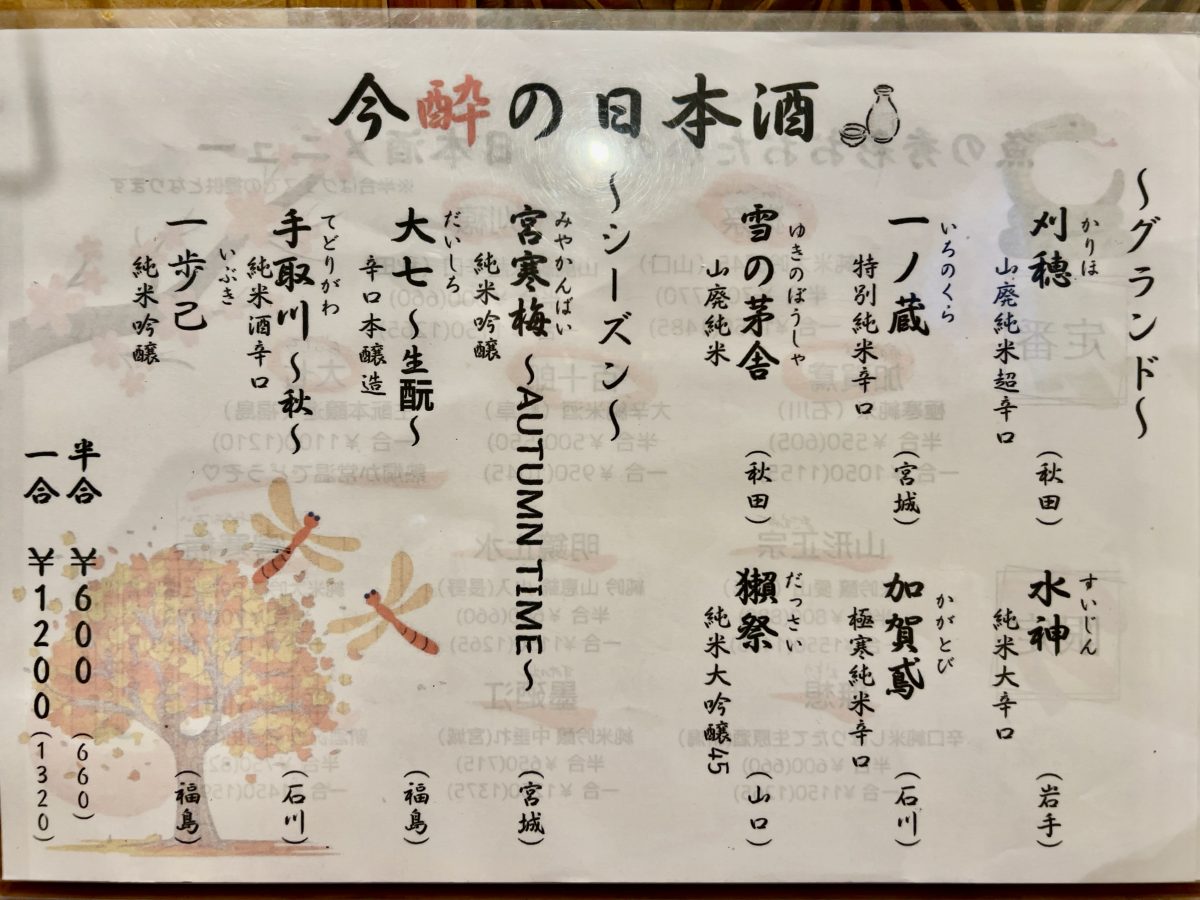 今酔の日本酒
～グランド～
かりほ
刈穂
山廃純米超辛口
(秋田)
すいじん
水神
純米大辛口
(岩手)
いちのくら
一ノ蔵
特別純米辛口
(宮城)
かがとび
加賀鳶
極寒純米辛口
(石川)
ゆきのぼうしゃ
雪の茅舎
山廃純米
(秋田)
だっさい
獺祭
純米大吟醸45
(山口)
～シーズン～
みやかんばい
宮寒梅～AUTUMN TIME～
純米吟醸
(宮城)
だいしち
大七～生酛～
辛口本醸造
(福島)
てどりがわ
手取川～秋～
純米酒辛口
(石川)
いぶき
一歩己
純米吟醸
(福島)
半合 ￥600(660)
一合 ￥1200(1320)